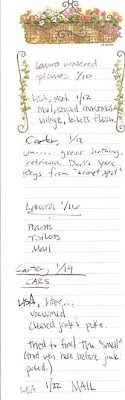 Laura watered
plants 1/10
LISA, wed. 1/12
Mail, stood christmas
village, toilets flush.
Carter, 1/12
Uh.... great nothing.
retrieved Dad's spare
keys from "secret spot"
Laura 1/16
Plants
Toilets
Mail
Carter, 1/19
CARS
LISA, later...
vacuumed
cleaned jack's puke.
tried to find the "smell"
(that was here before jack
puked.)
LISA 1/22 MAIL